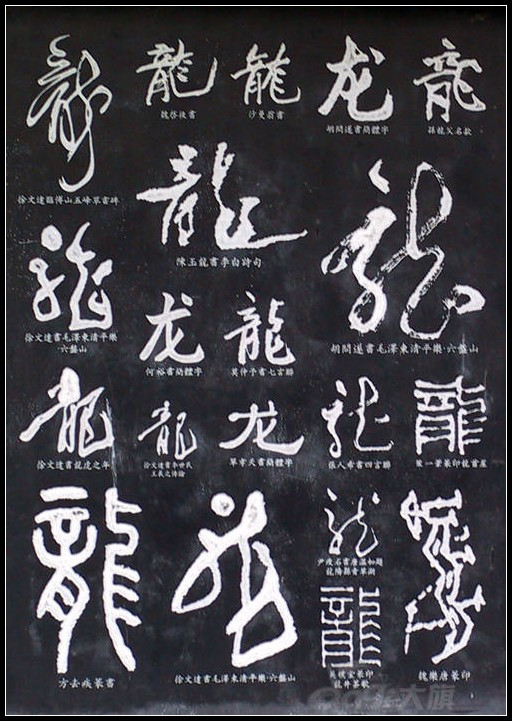 龍
龍
龍
龙
龍
魏啓後書
沙曼翁書
胡問遂書簡體字
孫龍父名款
徐文達臨傅山五峰草書碑
龍
龍
陳玉龍書李白詩句
龍
徐文達書毛澤東清平樂·
六盤山
龙
龍
胡問遂書毛澤東清平樂·六盤山
何裕書簡體字
莫仲予書七言聯
龍
龍
龙
龍
龍
徐文達書龍虎之年
徐文達書李世民
王羲之傳論
單孝天書簡體字
張人希書四言聯
龍
龍
龍
龍
龍
龍陽縣青草湖
方去疾篆書
徐文達書毛澤東清平樂·六盤山
龍井茶歌
魏樂唐篆印
大旗